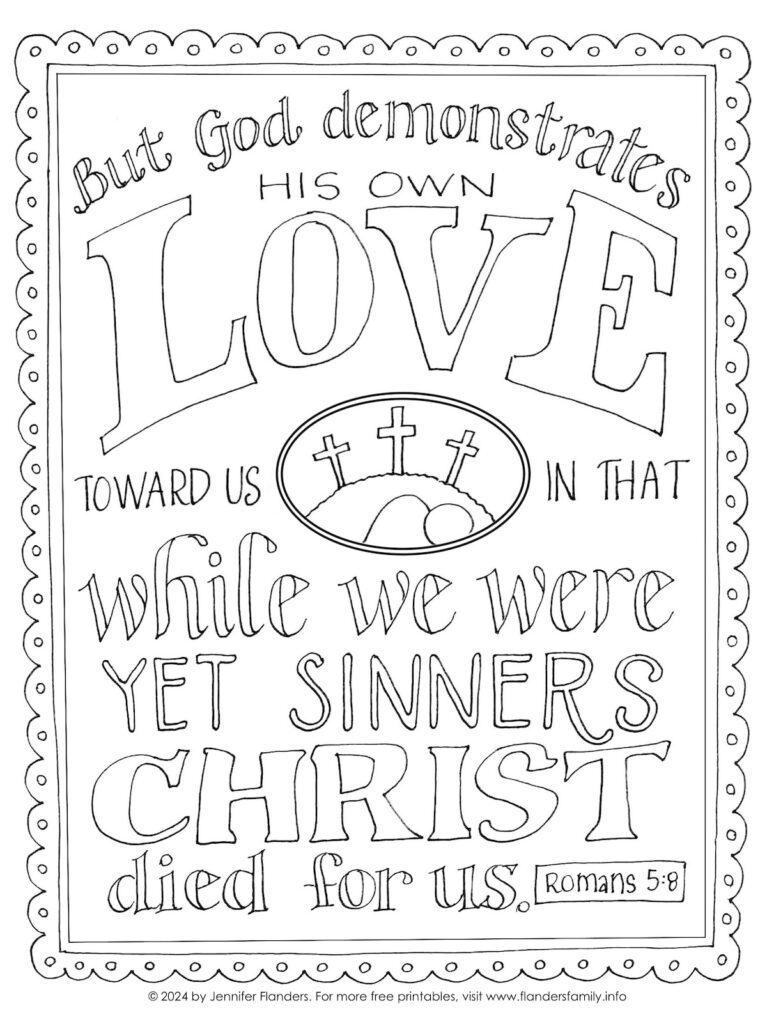 But God demonstrates
HIS OWN
LOVE
TOWARD US IN THAT
while we were
YET SINNERS
CHRIST
died for us. Romans 5:8
© 2024 by Jennifer Flanders. For more free printables, visit www.flandersfamily.info